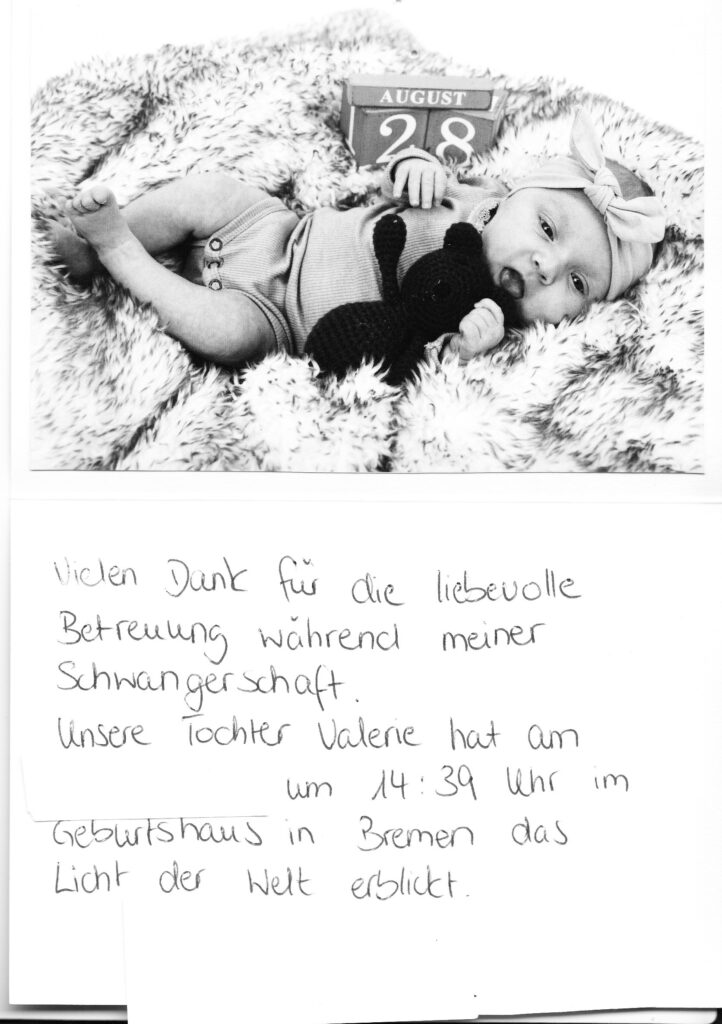 AUGUST
28
Vielen Dank für die liebevolle
Betreuung während meiner
Schwangerschaft.
Unsere Tochter Valerie hat am
um 14:39 Uhr im
Geburtshaus in Bremen das
Licht der Welt erblickt.